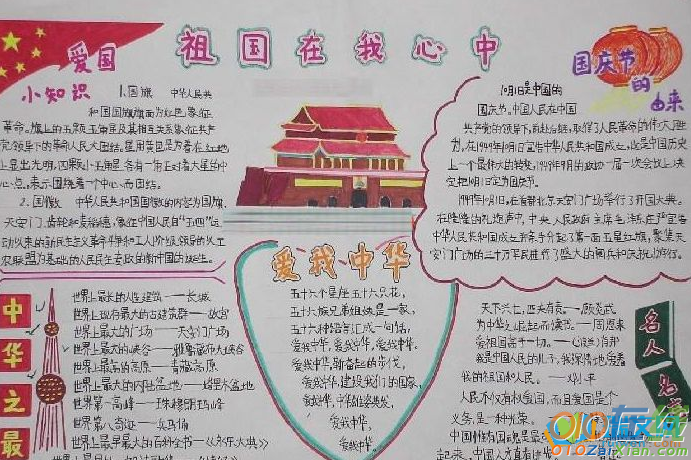 祖国在我心中
爱国
小知识
1.国旗 中华人民共
和国国旗旗面为红色,象征
革命。旗上的五颗五角星及其相互关系象征共产
党领导下的革命人民大团结。星用黄色是为着在红地
上显出光明,四颗小五角星各有一角正对着大星的中
心点,表示围绕着一个中心而团结。
2.国徽 中华人民共和国国徽的内容为国旗、
天安门、齿轮和麦稻穗,象征中国人民自“五四”运
动以来的新民主主义革命斗争和工人阶级领导的以工
农联盟为基础的人民民主专政的新中国的诞生。
国庆节
的
由来
10月1日是中国的
国庆节。中国人民在中国
共产党的领导下,前赴后继,取得了人民革命的伟大胜
利,在1949年10月1日宣告中华人民共和国成立,这是中国历史
上一个最伟大的转变,1949年9月的政协一届一次会议上决
定把10月1日定为国庆节。
1949年10月1日,在首都北京天安门广场举行了开国大典。
在隆隆的礼炮声中,中央人民政府主席毛泽东庄严宣告
中华人民共和国成立并亲手升起了第一面五星红旗。聚集天
安门广场的三十万军民进行了盛大的阅兵和庆祝游行。
中华之最
世界上最长的人造建筑——长城
世界上现存最大的古建筑群——故宫
世界上最大的广场——天安门广场
世界上最大的峡谷——雅鲁藏布大峡谷
世界上最高的高原——青藏高原
世界上最大的内陆盆地——塔里木盆地
世界第一高峰——珠穆朗玛峰
世界第八奇迹——兵马俑
世界上最早最大的百科全书——《永乐大典》
爱我中华
五十六个星座五十六只花,
五十六族兄弟姐妹是一家,
五十六种语言汇成一句话,
爱我中华,爱我中华,爱我中华。
爱我中华,
爱我中华,建设我们的国家,
爱我中华,
爱我中华,
爱我中华。
名人名言
天下兴亡,匹夫有责。——顾炎武
为中华之崛起而读书。——周恩来
我是中国人民的儿子,我深情地爱着
我的祖国和人民。——邓小平
人民不仅有权爱国,而且爱国是个
义务,是一种光荣。
010在线
010ZaiXian.com